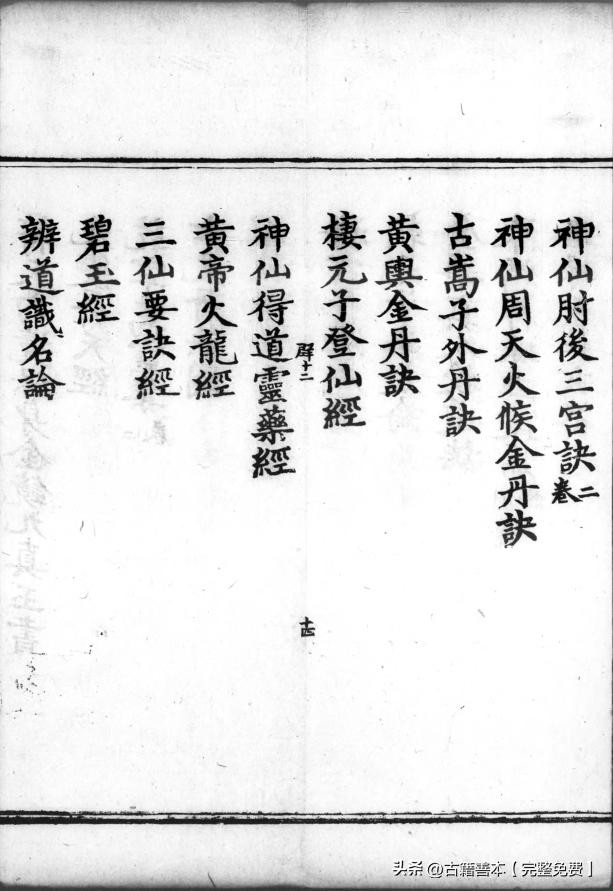 神仙肘後三宫訣二卷
神仙周天火候金丹訣
古嵩子外丹訣
黃輿金丹訣
棲元子登仙經
十二
十四
神仙得道靈藥經
黃帝火龍經
三仙要訣經
碧玉經
辨道識名論
头条 @古籍善本【完整免费】